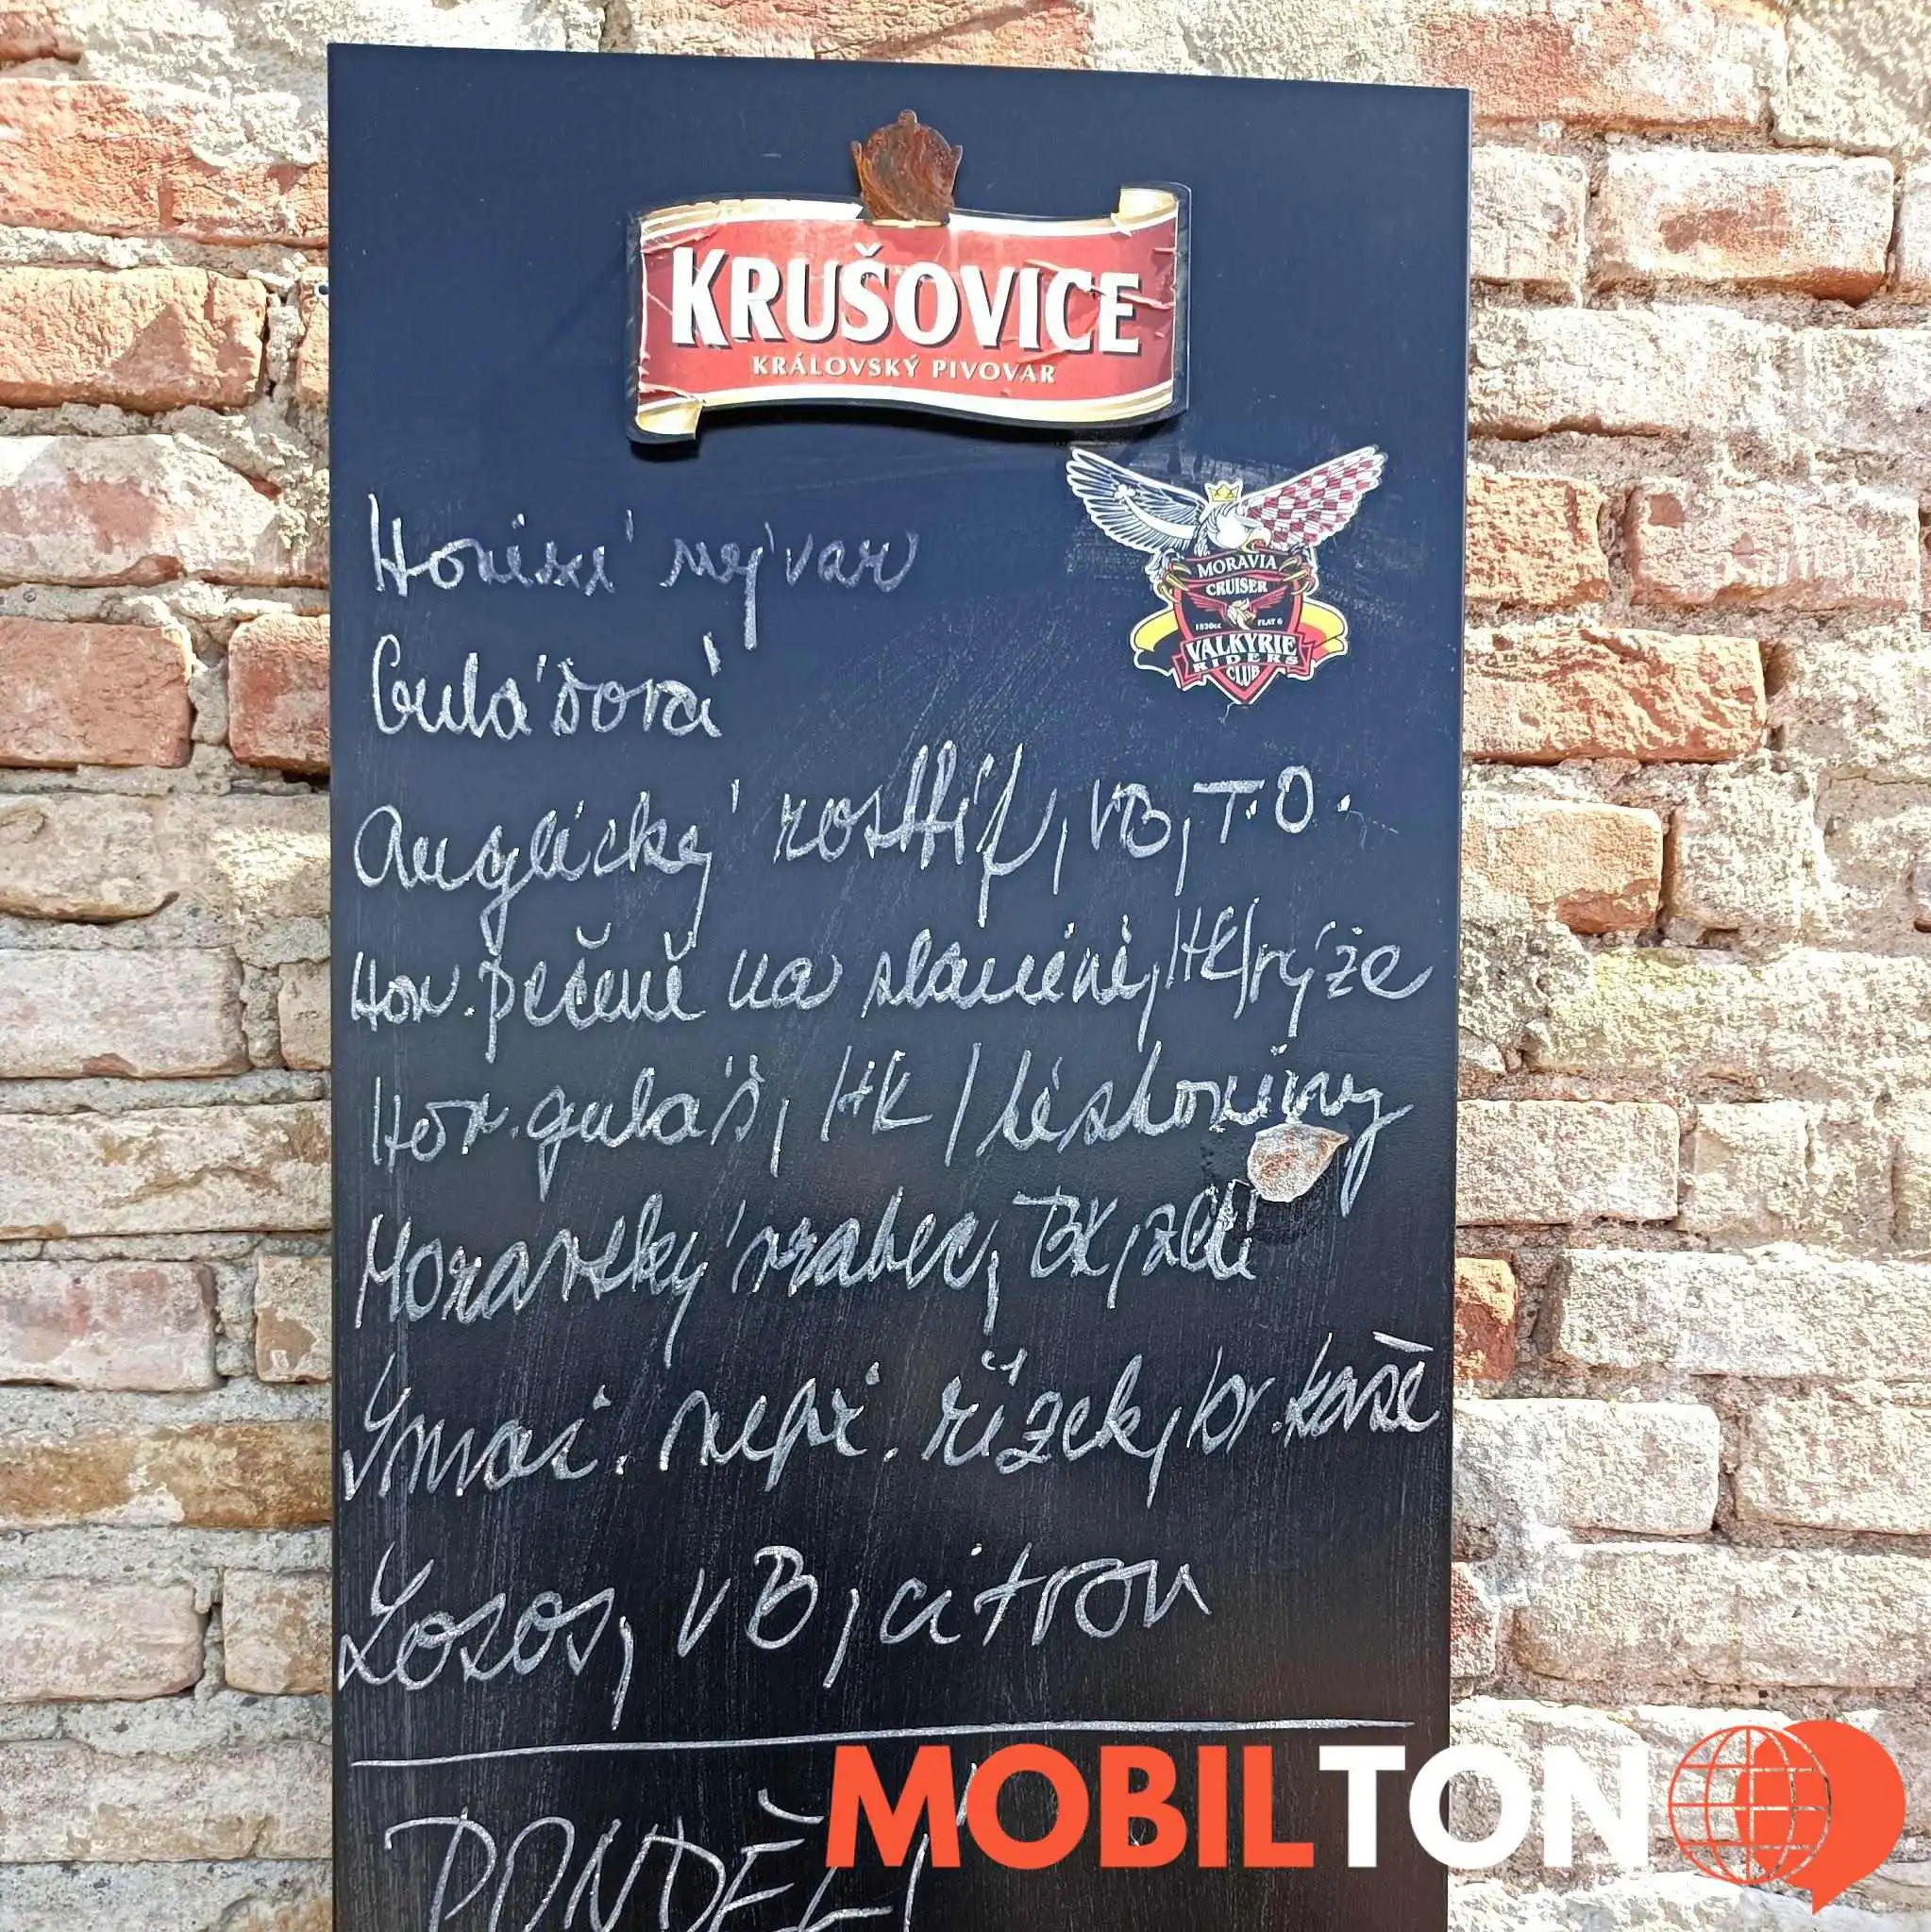 KRUŠOVICE
KRÁLOVSKÝ PIVOVAR
MORAVIA
CRUISER
1520cc FLAT 6
VALKYRIE
RIDERS
CLUB
Hovězí vývar
Gulášová
Anglický rostbíf, VB, T.O.
Hov. pečeně na slanině, HK/rýže
Hov. guláš, HK / těstoviny
Moravský vrabec, BK, zelí
Smaž. vepř. řízek, br. kaše
Losos, VB, citron
PONDĚLÍ
MOBILTON